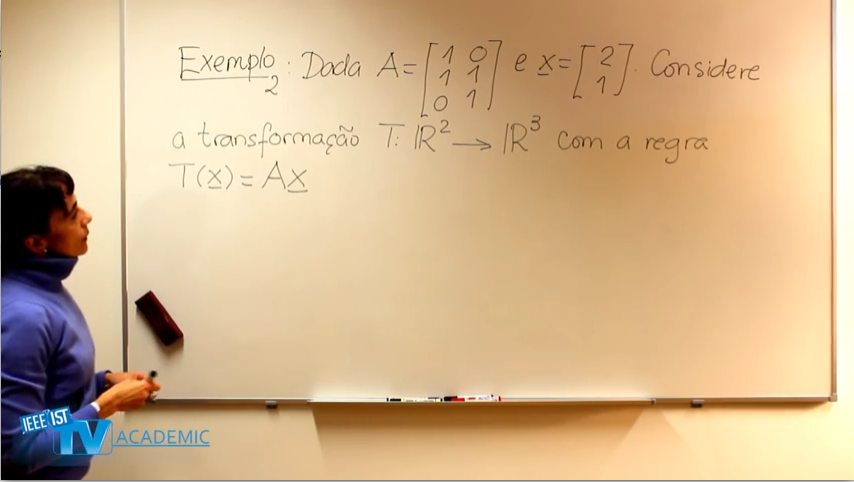 Exemplo 2: Dada A = [1 0 1 1 0 1] e x = [2 1]. Considere
a transformação T: ℝ² → ℝ³ com a regra
T(x) = Ax
IEEE IST
TV ACADEMIC